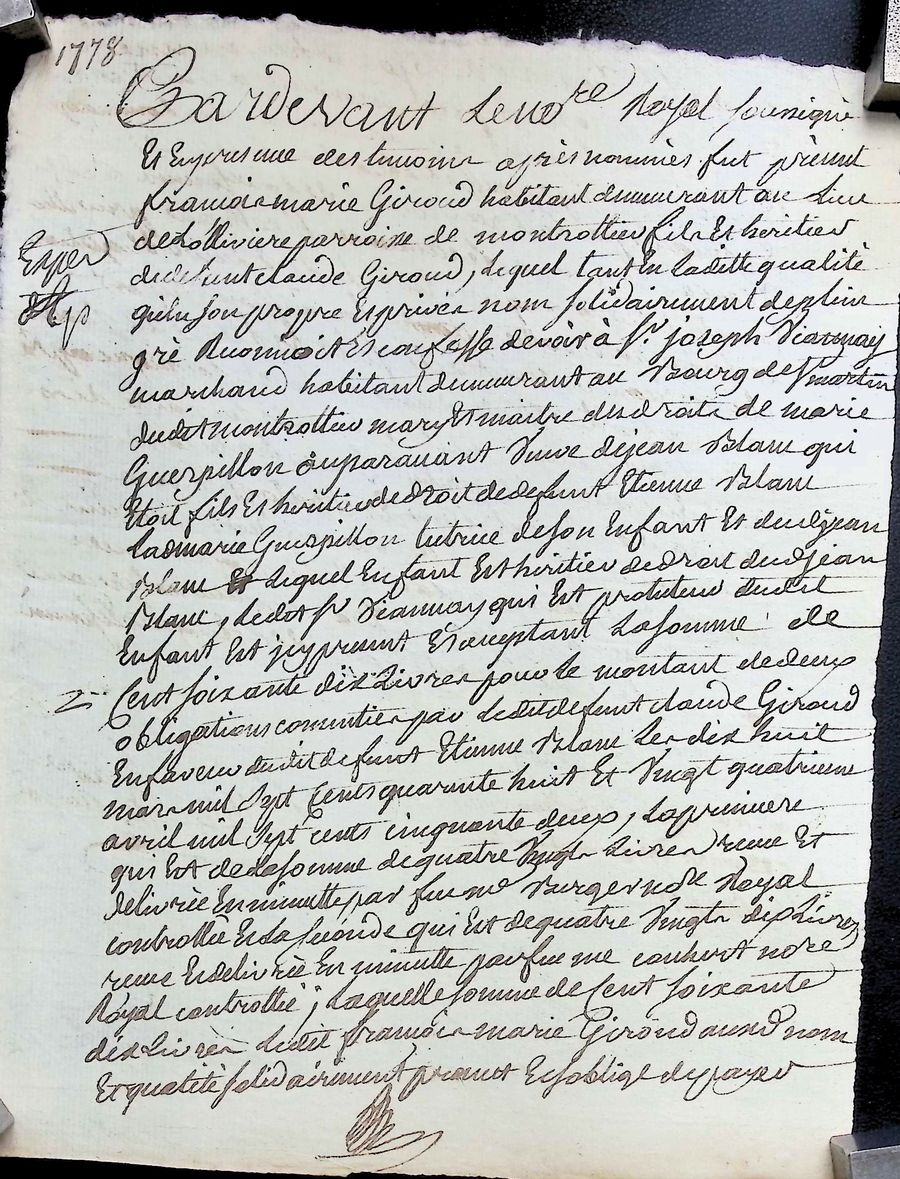 1778
Pardevant Le no.re Royal soussigné
Et En presence des temoins après nommés fut présent
francois marie Giroud habitant demeurant au Lieu
de Lollivière parroisse de montrottier fils Et heritier
de defunt claude Giroud, Lequel tant En Laditte qualité
qu'En son propre Et privé nom solidairement de plein
gré Reconnoit Et confesse devoir à Sr. joseph Viannay
marchand habitant demeurant au Bourg de St martin
dudit montrottier mary Et maitre des droits de marie
Guerpillon auparavant Veuve de jean Blanc qui
Etoit fils Et heritier de droit de defunt Etienne Blanc
Lad marie Guerpillon tutrice de son Enfant Et dud jean
Blanc Et Lequel Enfant Est heritier de droit dud jean
Blanc, Ledit Sr Viannay qui Est protuteur dudit
Enfant Est jcy present Et acceptant La somme de
Cent soixante dix Livres pour le montant de deux
obligations consenties par Ledit defunt claude Giroud
En faveur dudit defunt Etienne Blanc Les dix huit
mars mil Sept Cents quarante huit Et Vingt quatrieme
avril mil Sept cents cinquante deux, La premiere
qui Est de La somme de quatre Vingts Livres reçue Et
delivrée En minutte par feu me Burger no.re Royal
controllée Et La seconde qui Est de quatre Vingts dix Livres
reçue Et delivrée En minutte par feu me no.re
Royal controllée; Laquelle somme de Cent soixante
dix Livres Ledit francois marie Giroud aux d nom
Et qualité solidairement promet Et s'oblige de payer
Exped
2